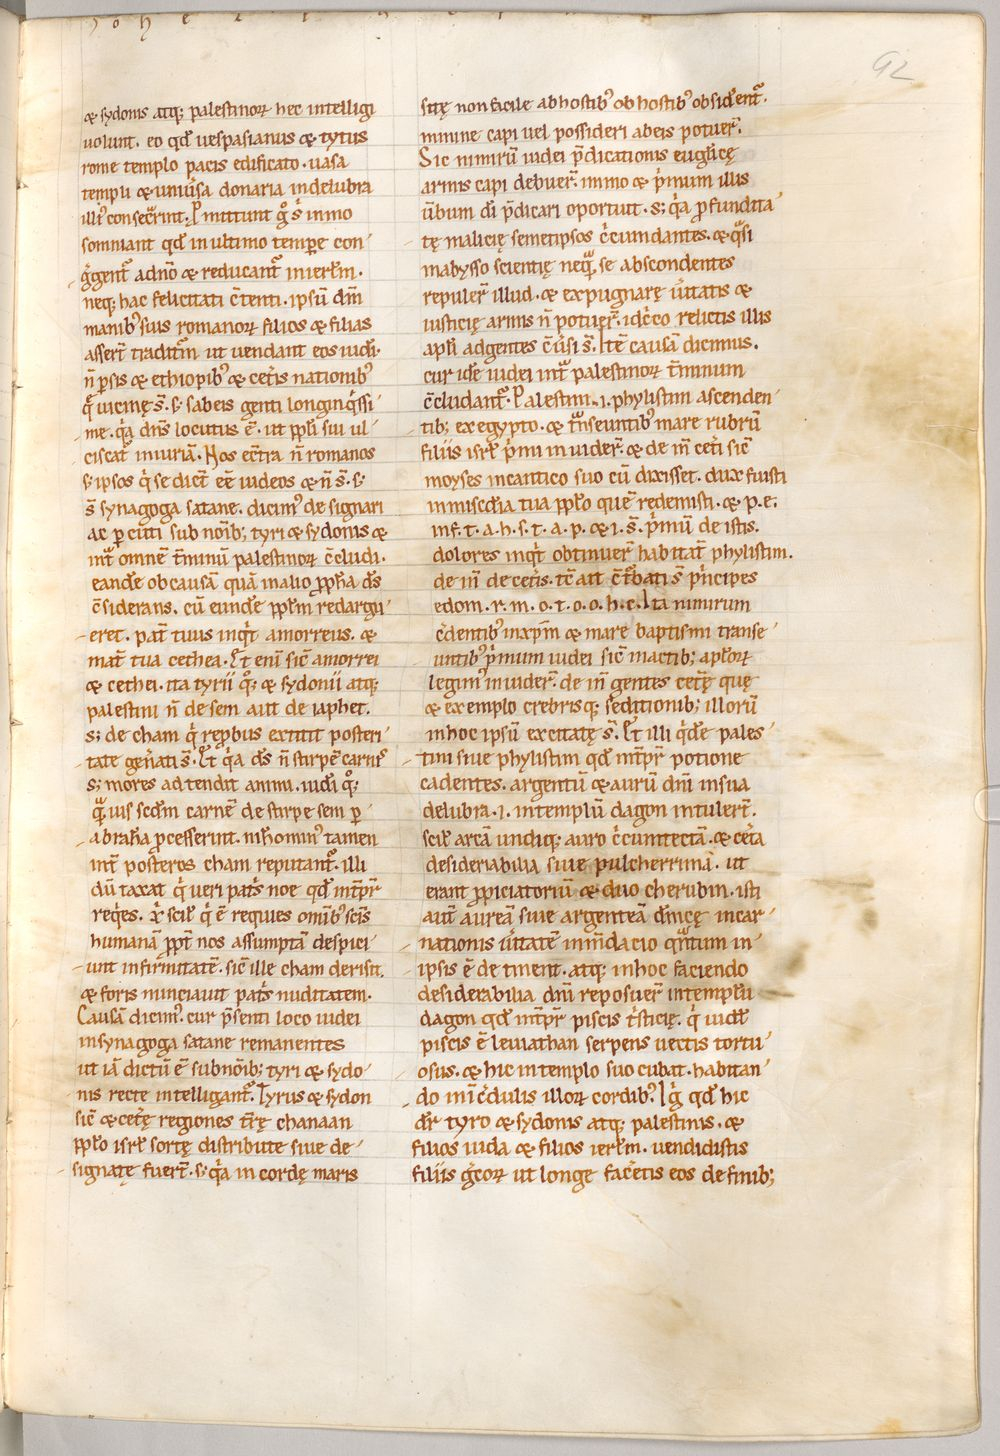 92
& sydonis atq; palestinoꝝ hec intelligi
uolunt. eo qd̄ uespasianus & tytus
rome templo pacis edificato. uasa
templi & uniu͛sa donaria in delubra
illi᷒ consecr̄rint. P mittunt g̊ s̄ immo
somniant qd̄ in ultimo tempe con
g̍gent᷑ ad nō & reducant᷑ in ierl̄m.
neq; hac felicitati c̄tenti. ipsū dm̄
manib᷒ suis romanoꝝ filios & filias
assert̄ traditm̄ ut uendant eos iudi̍.
n̄ persis & ethiopib᷒ & cet͛is nationib᷒
q̍ uicinę s̄. s; sabeis genti longinq̍ssi
me. q̍a dn̄s locutus ē. ut ppl̄i sui ul
ciscat᷑ iniuriā. Nos ec̄tra n̄ romanos
s; ipsos q̍ se dict̄ eē iudeos & n̄ s̄. s;
s̄ synagoga satane. dicim᷒ de signari
ac ꝑcuti sub noīb; tyri & sydonis &
int͛ omnē t͛minū palestinoꝝ c̄cludi.
eandē ob causā quā in alio ꝓph̄a dś
c̄siderans. cū eundē ppl̄m redargu
eret. pat̄ tuus inq̍t amorreus. &
mat̄ tua cethea. Et enī sic̄ amorrei
& cethei. ita tyrii q̊; & sydonii atq;
palestini n̄ de sem aut de iaphet.
s; de cham q̍ reprobus extitit posteri
tate gen͛ati s̄. Et q̍a dś n̄ stirpē carnis̄
s; mores adtendit animi. iudi̍ q̊;
q̄uis scdm̄ carnē de stirpe sem ꝑ
abrahā ꝓcesserint. nih̄omin᷒ tamen
int͛ posteros cham reputant᷑. illi
dū taxat q̍ ueri pat̍s noe qd̄ int͛pr̄
req̍es. x̄ scil̄ q̍ ē requies omīb᷒ scīs
humanā ꝓpt̄ nos assumptā despici
unt infirmitatē. sic̄ ille cham derisit.
& foris nunciauit pat̍s nuditatem.
Causā dicim᷒. cur p̄senti loco iudei
in synagoga satane remanentes
ut iā dictū ē sub noīb; tyri & sydo
nis recte intelligant᷑. Tyrus & sydon
sic̄ & cet͛ę regiones t͛rę chanaan
ppl̄o isrl̄ sortę distribute siue de
signatę fuer̄t. s; q̍a in cordę maris
sitę non facile ab hostib᷒ ob hostib᷒ obsident᷑.
minime capi uel possideri ab eis potuer̄.
Sic nimirū iudei p̄dicationis eugl̄icę
armis capi debuer̄. immo & p̍mum illis
u͛bum di̍ p̄dicari oportuit. s; q̍a ꝓfundita
tę malicię semetipsos c̍cumdantes. & q̄si
in abysso scientię neq̄ se abscondentes
repuler̄ illud. & expugnarę u͛itatis &
iusticię armis n̄ potuer̄. idc̍co relictis illis
apl̄i ad gentes c̄u͛si s̄. Itē causā dicimus.
cur idē iudei int͛ palestinoꝝ t͛minum
c̄cludant᷑. Palestini .i. phylistiim ascenden
tib; ex egypto. & t͛nseuntib᷒ mare rubrū
filiis isrl̄ p̍mi inuider̄. & de īn cet͛i sic̄
moyses in cantico suo cū dixisset. dux fuisti
in miscd̄ia tua ppl̄o quē redemisti. & p. e.
inf. t. a. h. s. t. a. p. & i. s̄. p̍mū de istis.
dolores inq̍t obtinuer̄ habitat̄ phylistim.
de īn de cet͛is. tc̄ ait c̄t͛bati s̄ p̍ncipes
edom. r. m. o. t. o. o. h. c. Ita nimirum
c̍dentib᷒ in xpm̄ & mare baptismi transe
untib᷒ p̍mum iudei sic̄ in actib; apl̄oꝝ
legim᷒ inuider̄. de īn gentes cet͛ę quę
& exemplo crebrisq; seditionib; illorū
in hoc ipsū excitatę s̄. Et illi q̍dē pales
tini siue phylistim qd̄ int͛pr̄ potione
cadentes. argentū & aurū dm̄i in sua
delubra .i. in templū dagon intuler̄t.
scil̄ arcā undiq; auro c̍cumtectā. & cet͛a
desideriabilia siue pulcherrimā. ut
erant ꝓpiciatoriū & duo cherubin. isti
aut̄ aureā siue argenteā dn̄icę incar
nationis u͛itatē in m̄dacio q̄ntum in
ipsis ē detinent. atq; in hoc faciendo
desiderabilia dm̄i reposuer̄ in templū
dagon qd̄ int͛pr̄ piscis t͛sticię. q̍ uidel̄
piscis ē leuiathan serpens uectis tortu
osus. & hic in templo suo cubat. habitan
do in īc̍dulis illoꝝ cordib᷒. Ig̍ qd̄ hic
dr̄ tyro & sydonis atq; palestinis. &
filios iuda & filios ierl̄m. uendidistis
filiis g̍coꝝ ut longe fac͛etis eos de finib;